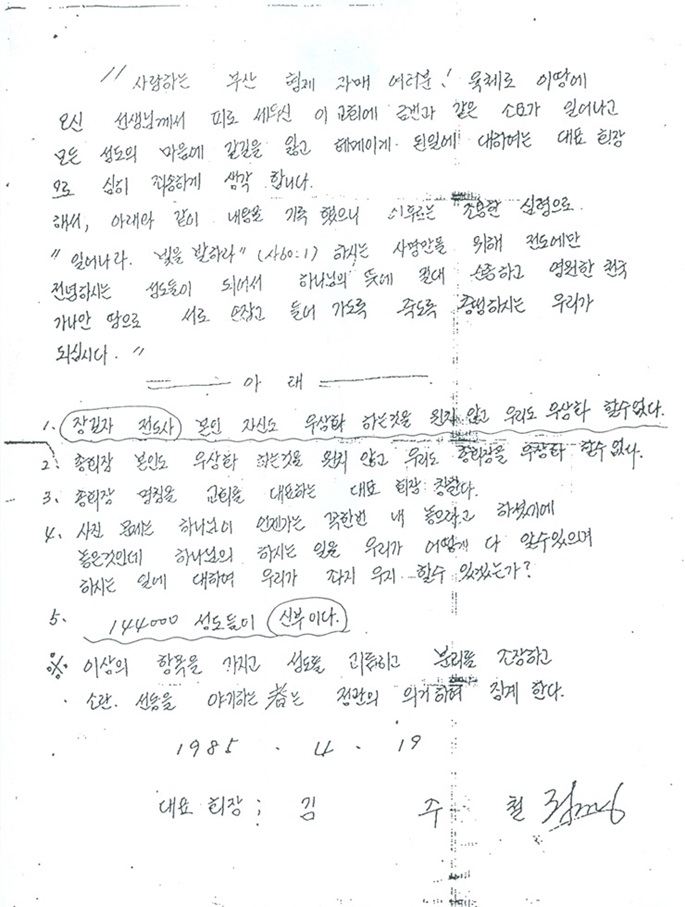 "사랑하는 부산 형제 자매 여러분! 육체로 이땅에
오신 선생님께서 피로 세우신 이 교회에 금번과 같은 소요가 일어나고
모든 성도의 마음에 갈길을 잃고 헤메이게 된일에 대하여는 대표 회장
으로 심히 죄송하게 생각 합니다.
해서, 아래와 같이 내용을 기록 했으니 이후로는 조용한 심령으로
"일어나라. 빛을 발하라" (사60:1) 하시는 사명만을 위해 전도에만
전념하시는 성도들이 되어서 하나님의 뜻에 절대 순종하고 영원한 천국
가나안 땅으로 서로 손잡고 들어 가도록 죽도록 충성하시는 우리가
되십시다. "
아 래
1. 장길자 전도사 본인 자신도 우상화 하는것을 원치 않고 우리도 우상화 할수없다.
2. 총회장 본인도 우상화 하는것을 원치 않고 우리도 총회장을 우상화 할수 없다.
3. 총회장 명칭을 교회를 대표하는 대표 회장 칭한다.
4. 사진 문제는 하나님이 언젠가는 꼭한번 내 놓으라고 하셨기에
놓은것인데 하나님의 하시는 일을 우리가 어떻게 다 알수있으며
하시는 일에 대하여 우리가 좌지 우지 할수 있겠는가?
5. 144000 성도들이 신부이다.
※ 이상의 항목을 가지고 성도를 괴롭히고 분리를 조장하고
소란. 선동을 야기하는 者는 정관의 의거하여 징계 한다.
1985. 4. 19
대표 회장; 김 주 철